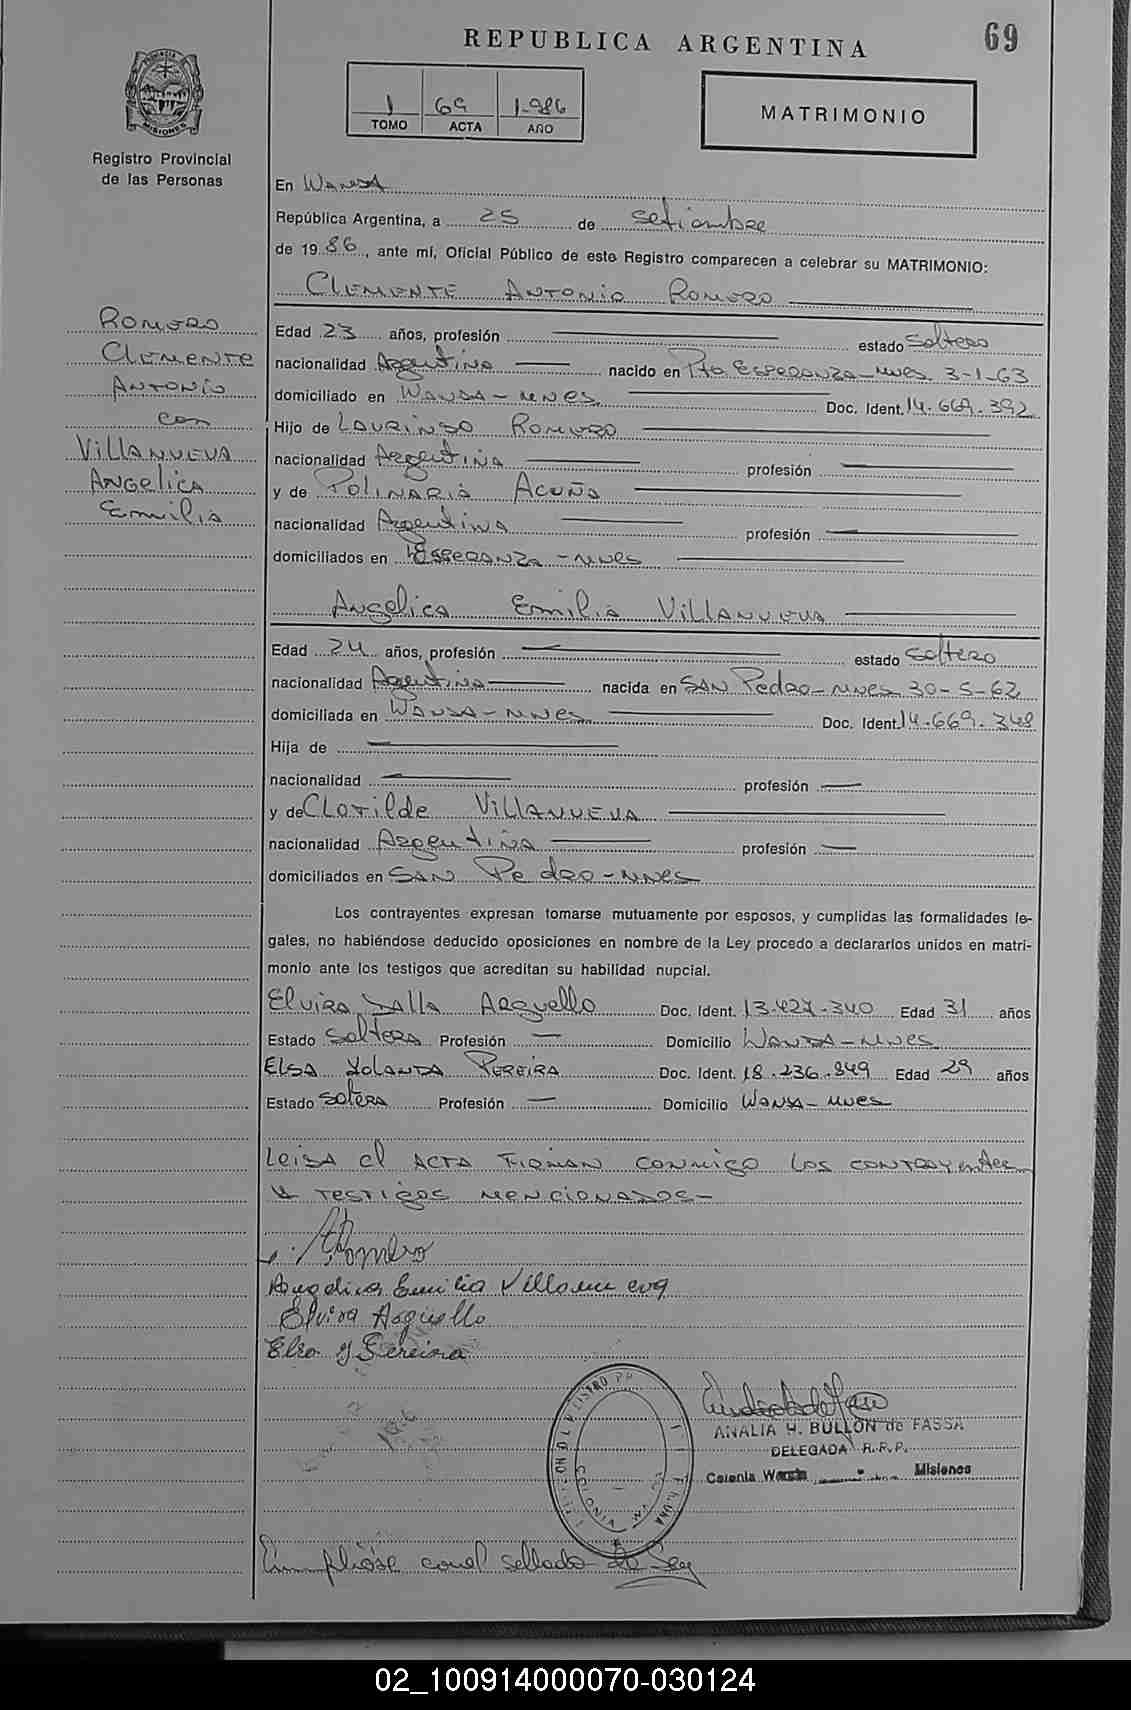 REPUBLICA ARGENTINA
69
PROVINCIA
MISIONES
Registro Provincial
de las Personas
1 69 1.986
TOMO ACTA AÑO
MATRIMONIO
En WANDA
República Argentina, a 25 de setiembre
de 1986, ante mí, Oficial Público de este Registro comparecen a celebrar su MATRIMONIO:
CLEMENTE ANTONIO ROMERO
ROMERO
CLEMENTE
ANTONIO
con
VILLANUEVA
ANGELICA
Emilia
Edad 23 años, profesión estado Soltero
nacionalidad Argentina nacido en Pto. ESPERANZA-MNES 3-1-63
domiciliado en WANDA-MNES Doc. Ident. 14.669.392
Hijo de LAURINDO ROMERO
nacionalidad Argentina profesión
y de POLINARIA ACUÑA
nacionalidad Argentina profesión
domiciliados en ESPERANZA-MNES
ANGELICA EMILIA VILLANUEVA
Edad 24 años, profesión estado soltero
nacionalidad Argentina nacida en SAN Pedro-MNES 30-5-62
domiciliada en WANDA-MNES Doc. Ident. 14.669.348
Hija de
nacionalidad profesión
y de CLOTILDE VILLANUEVA
nacionalidad Argentina profesión
domiciliados en SAN PEDRO-MNES
Los contrayentes expresan tomarse mutuamente por esposos, y cumplidas las formalidades le-
gales, no habiéndose deducido oposiciones en nombre de la Ley procedo a declararlos unidos en matri-
monio ante los testigos que acreditan su habilidad nupcial.
Elvira DALLA ARGUELLO Doc. Ident. 13.427.340 Edad 31 años
Estado Soltera Profesión Domicilio WANDA-MNES
ELSA YOLANDA PEREIRA Doc. Ident. 18.236.849 Edad 29 años
Estado SOTERA Profesión Domicilio WANDA-MNES
LEIDA el ACTA FIRMAN CONMIGO LOS CONTRAYENTES
Y TESTIGOS MENCIONADOS-
Romero
Angelica Emilia Villanueva
Elvira Arguello
Elsa Y Pereira
ANALIA H. BULLON de FASSA
DELEGADA R.R.P.
Colonia Wanda Misiones
Cumpliose con el sellado de Ley
02_100914000070-030124